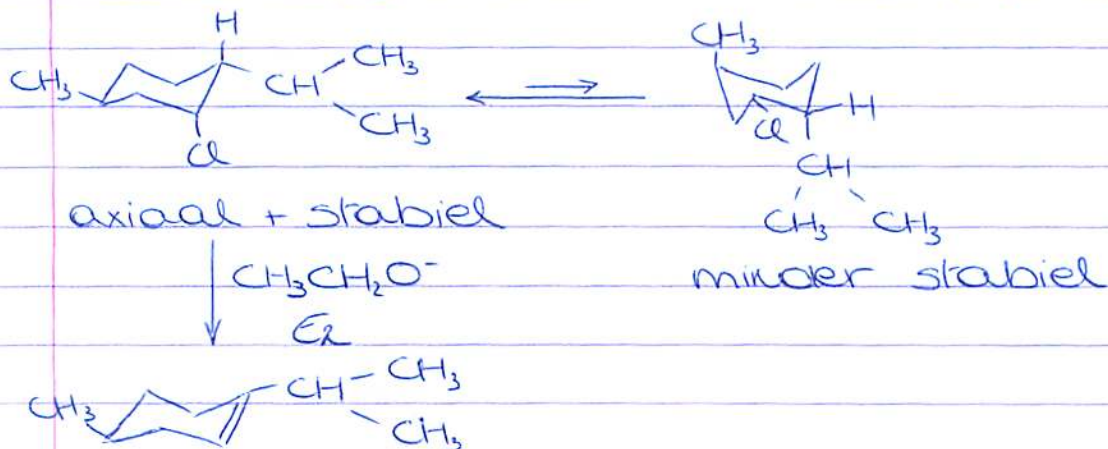 H
CH₃
CH₃
CH
CH₃
Cl
CH₃
H
Cl
CH
CH₃ CH₃
axiaal + stabiel
minder stabiel
CH₃CH₂O⁻
E2
CH₃
CH
CH₃
CH₃